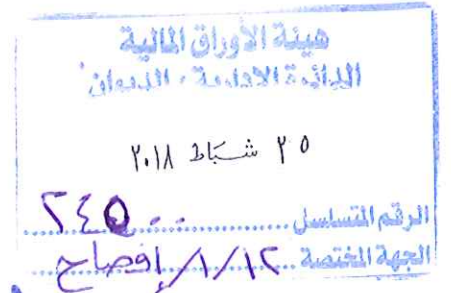 هيئة الأوراق المالية
الدائرة الادارية - الديوان
٢٥ شباط ٢٠١٨
الرقم المتسلسل ٢٤٥
الجهة المختصة ١٢/١/١ إفصاح